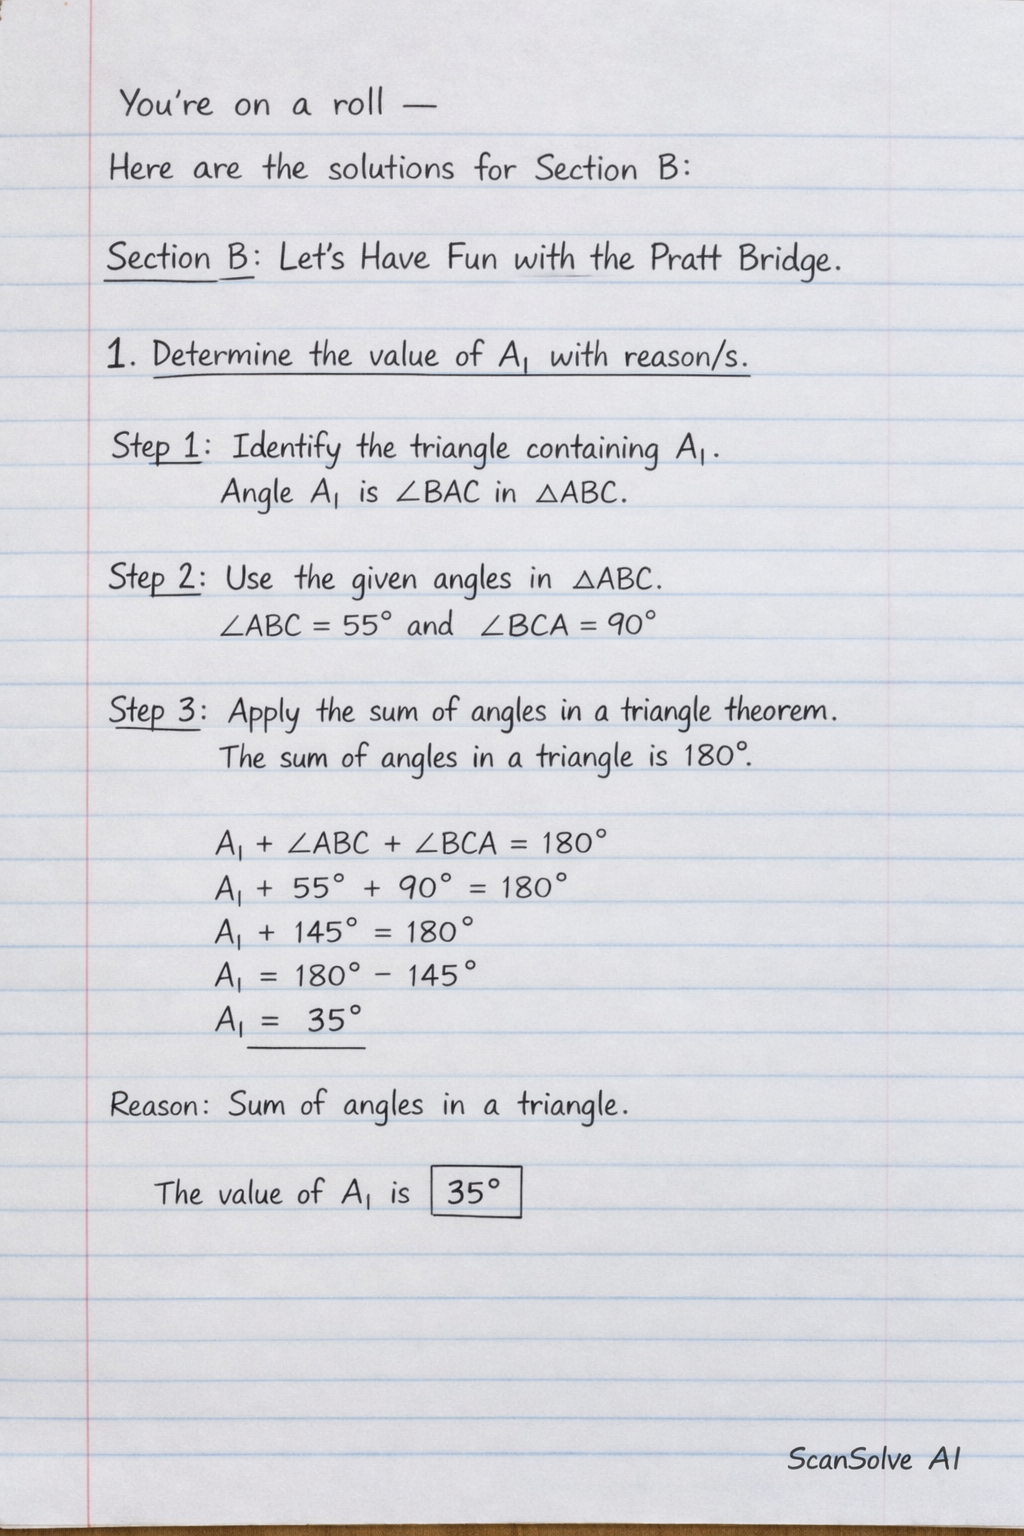 You're on a roll —
Here are the solutions for Section B:
Section B: Let's Have Fun with the Pratt Bridge.
1. Determine the value of A₁ with reason/s.
Step 1: Identify the triangle containing A₁.
Angle A₁ is ∠BAC in △ABC.
Step 2: Use the given angles in △ABC.
∠ABC = 55° and ∠BCA = 90°
Step 3: Apply the sum of angles in a triangle theorem.
The sum of angles in a triangle is 180°.
A₁ + ∠ABC + ∠BCA = 180°
A₁ + 55° + 90° = 180°
A₁ + 145° = 180°
A₁ = 180° − 145°
A₁ = 35°
Reason: Sum of angles in a triangle.
The value of A₁ is 35°
ScanSolve AI